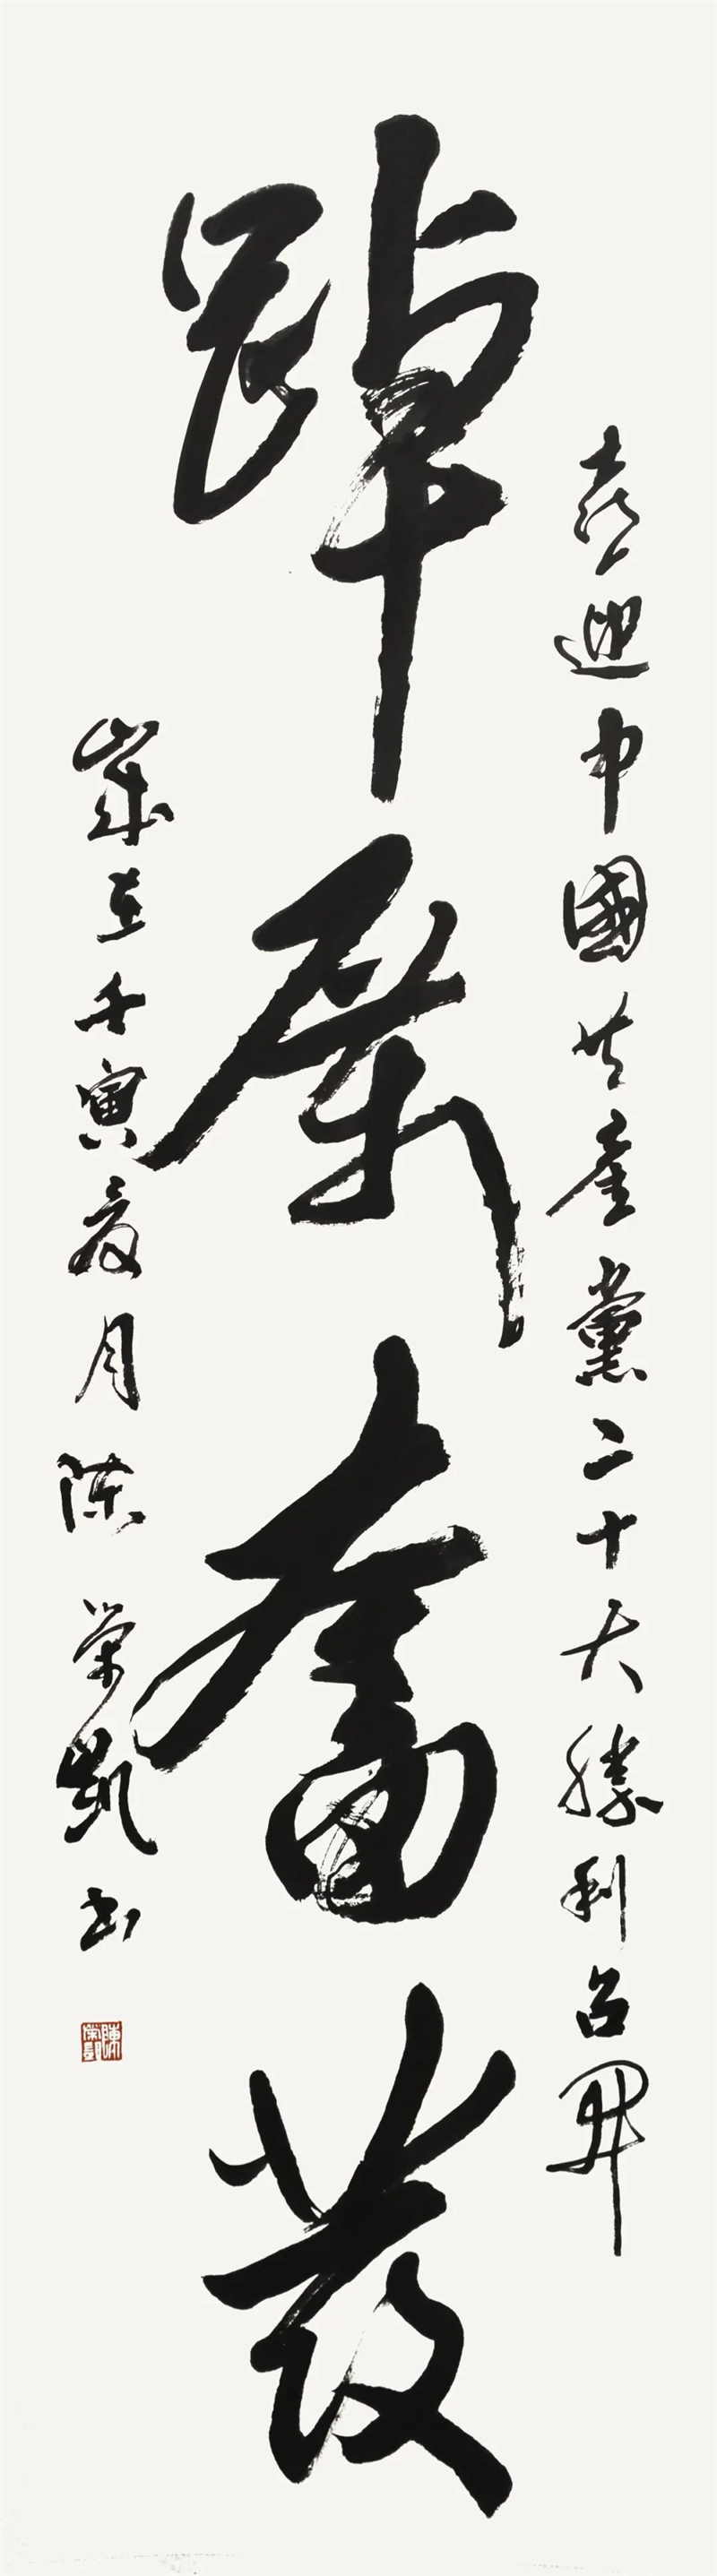 喜迎中國共產黨二十大勝利召開
踔厲奮發
歲在壬寅夏月陳榮凱書